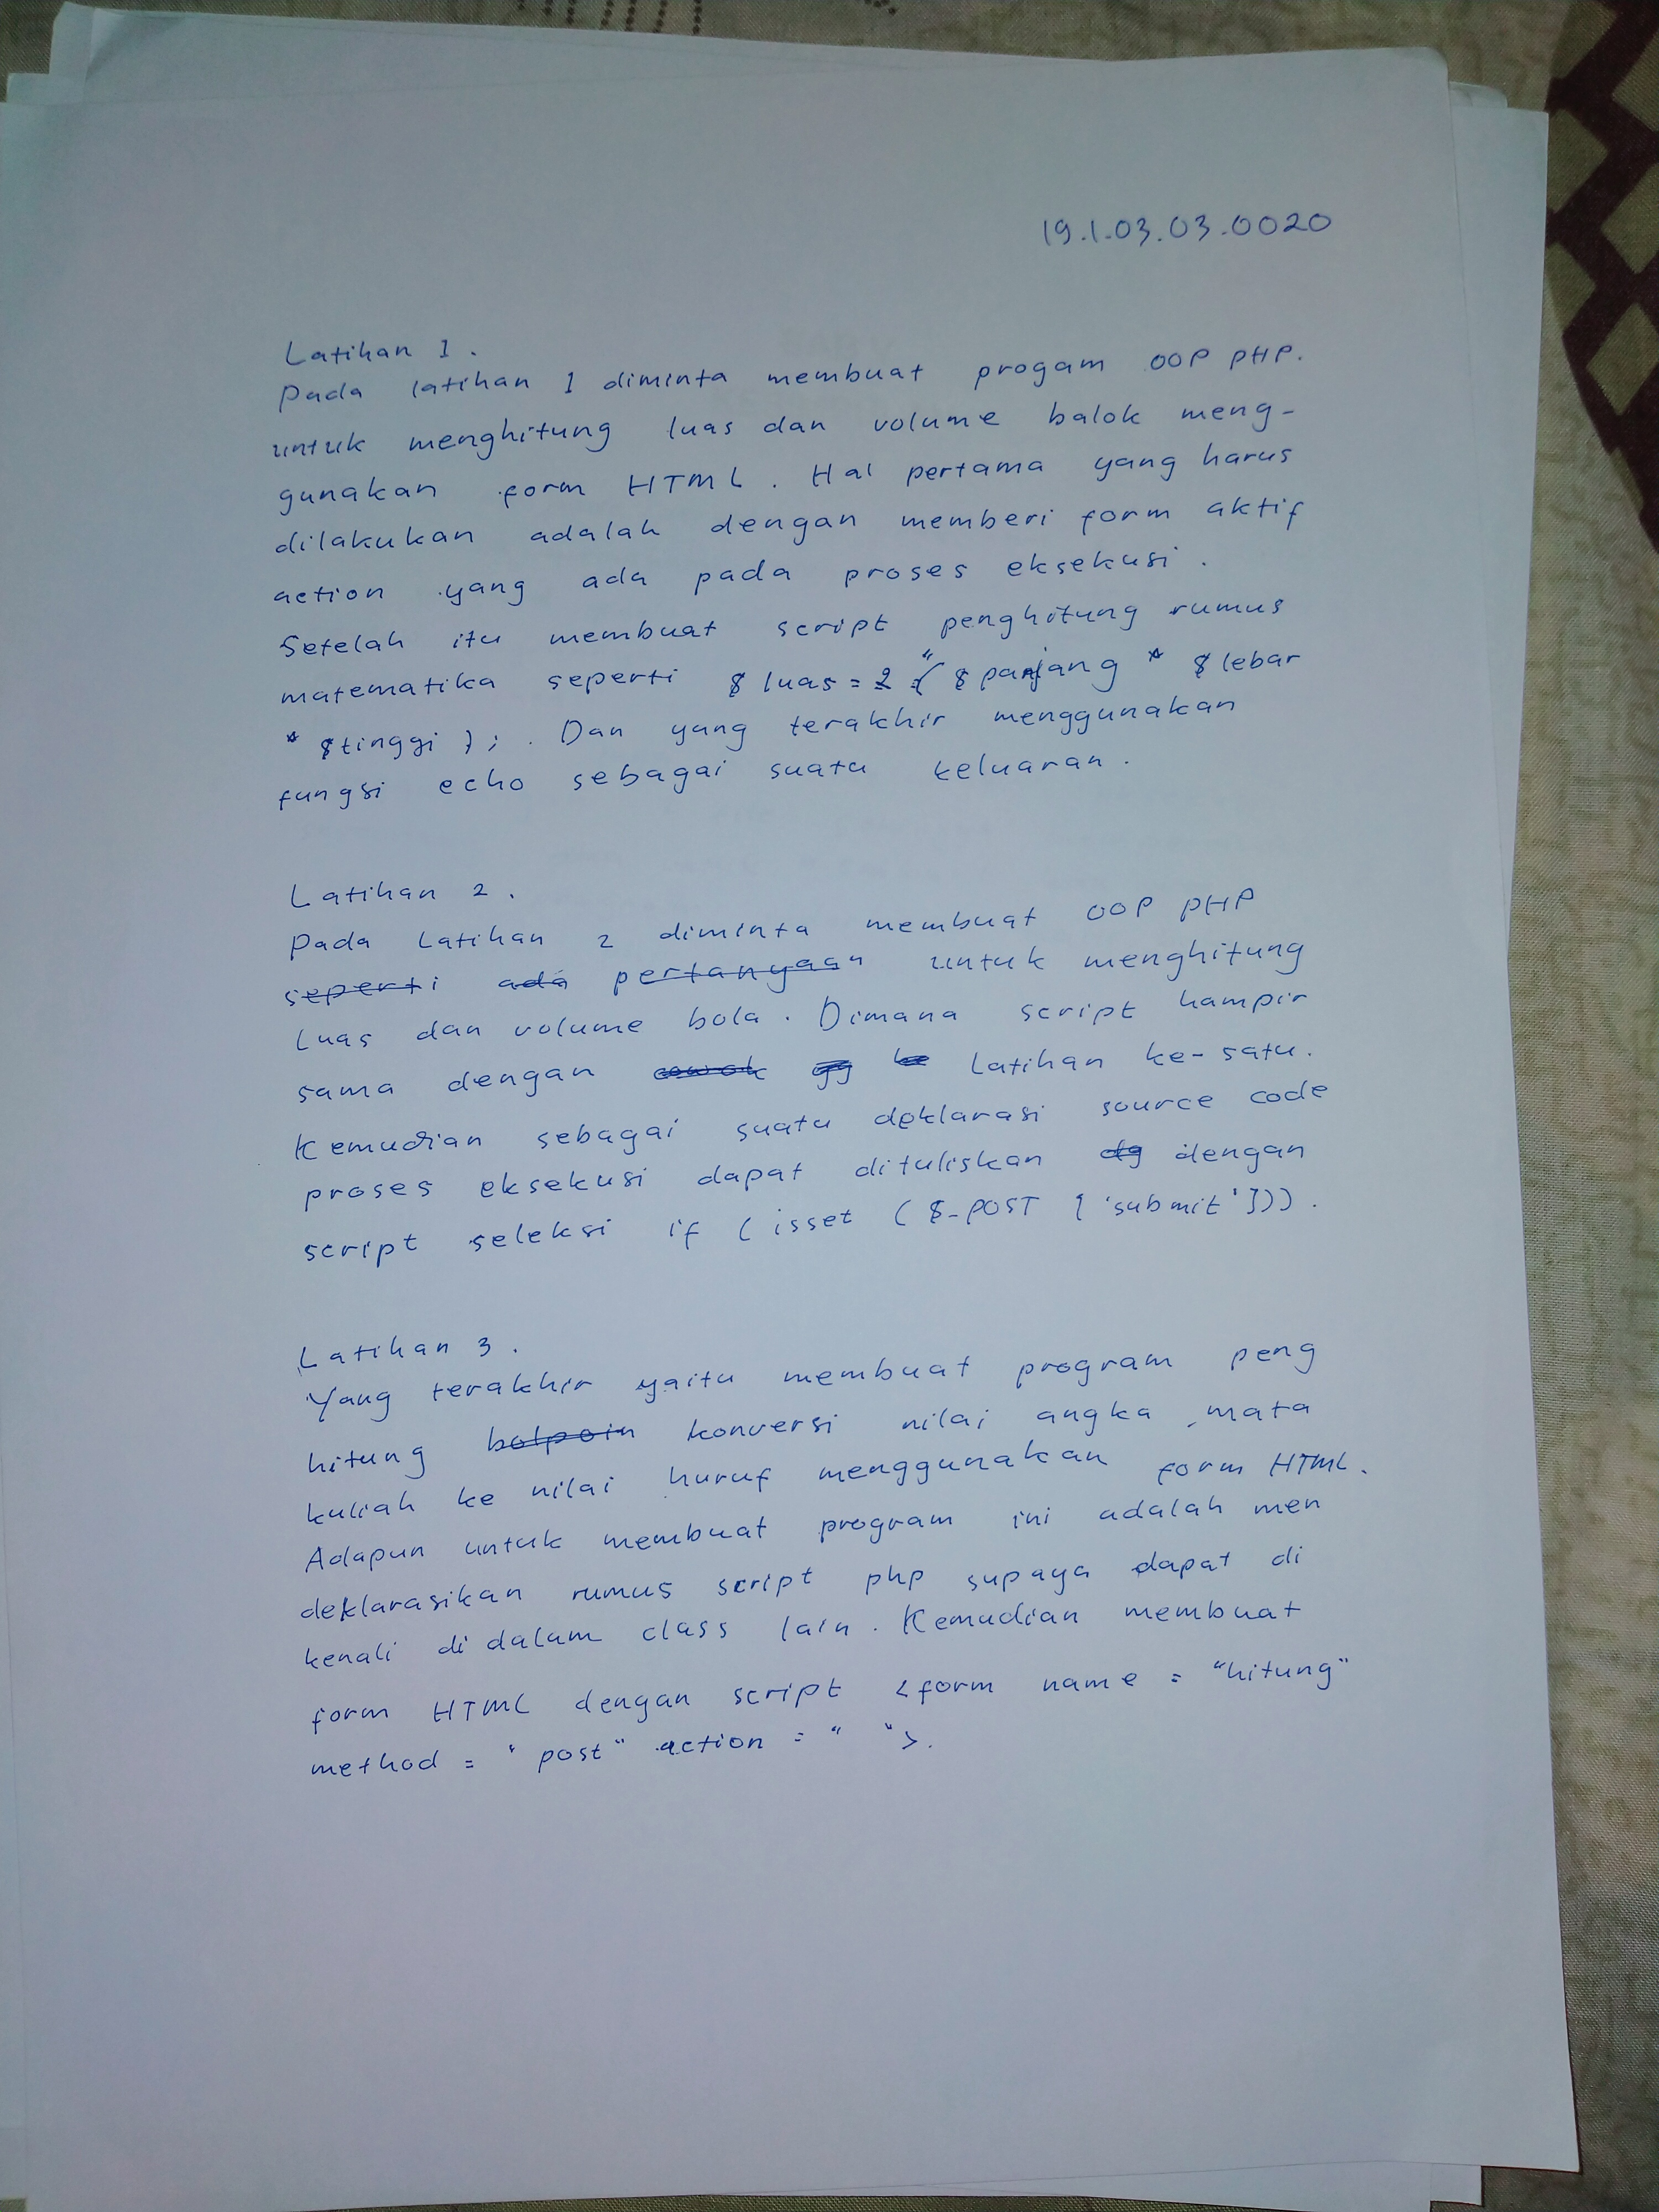 19.1.03.03.0020
Latihan 1.
Pada latihan 1 diminta membuat progam OOP PHP.
untuk menghitung luas dan volume balok meng-
gunakan form HTML. Hal pertama yang harus
dilakukan adalah dengan memberi form aktif
action yang ada pada proses eksekusi.
Setelah itu membuat script penghitung rumus
matematika seperti $luas = 2 * ($panjang * $lebar
* $tinggi); . Dan yang terakhir menggunakan
fungsi echo sebagai suatu keluaran.
Latihan 2.
Pada Latihan 2 diminta membuat OOP PHP
seperti ada pertanyaan untuk menghitung
Luas dan volume bola. Dimana script hampir
sama dengan Latihan ke-satu.
Kemudian sebagai suatu deklarasi source code
proses eksekusi dapat dituliskan dg dengan
script seleksi if (isset ($_POST ['submit'])).
Latihan 3.
Yang terakhir yaitu membuat program peng
hitung bolpoin konversi nilai angka mata
kuliah ke nilai huruf menggunakan form HTML.
Adapun untuk membuat program ini adalah men
deklarasikan rumus script php supaya dapat di
kenali di dalam class lain. Kemudian membuat
form HTML dengan script <form name = "hitung"
method = "post" action = " ">.